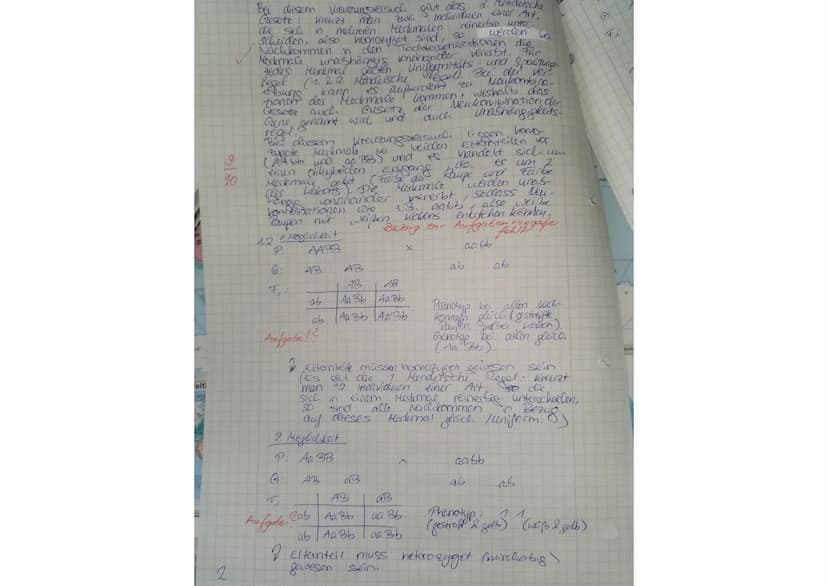 Bei diesem Kreuzungsversuch gilt das 3. Mendelsche
Gesetz: kreuzt man zwei Individuen einer Art,
die sich in mehreren Merkmalen reinerbig unter-
scheiden, also homozygot sind, so werden bei
Nachkommen in den Tochtergenerationen die
Merkmale unabhängig voneinander vererbt. Für
jedes Merkmal gelten Uniformitäts- und Spaltungs-
regel (1. & 2. Mendelsche Regel). Bei der Ver-
erbung kann es außerdem zu Neukombina-
tionen der Merkmale kommen, weshalb das
Gesetz auch Gesetz der Neukombination der
Gene genannt wird und auch Unabhängigkeits-
regel.
Bei diesem Kreuzungsversuch liegen homo-
zygote Merkmale bei beiden Elternteilen vor
(AAbb und aaBB) und es handelt sich um
einen dihybriden Erbgang, da es um 2
Merkmale geht (Farbe der Raupe und Farbe
des Kokons). Die Merkmale werden unab-
hängig voneinander vererbt, sodass Neu-
kombinationen wie z.B. aabb, also weiße
Raupen mit weißen Kokons entstehen können.
9/10
Bezug zur Aufgabenvorgabe
fehlt
1.2 1. Möglichkeit
P: AABB x aabb
G: AB AB ab ab
T1: AB AB
ab AaBb AaBb
ab AaBb AaBb
Phänotyp bei allen Nach-
kommen gleich (gestreifte
Raupen, gelber Kokon).
Genotyp bei allen gleich
(AaBb).
Aufgabe!?
Elternteile müssen homozygot gewesen sein
(Es gilt die 1. Mendelsche Regel: kreuzt
man 2 Individuen einer Art, die
sich in einem Merkmal reinerbig unterscheiden,
so sind alle Nachkommen in Bezug
auf dieses Merkmal gleich / uniform.)
2. Möglichkeit
P: AaBB x aabb
G: AB aB ab ab
T1: AB aB
ab AaBb aaBb
ab AaBb aaBb
Aufgabe?
Phänotyp: 1 1
(gestreift & gelb) (weiß & gelb)
Elternteil muss heterozygot (mischerbig)
gewesen sein.
2